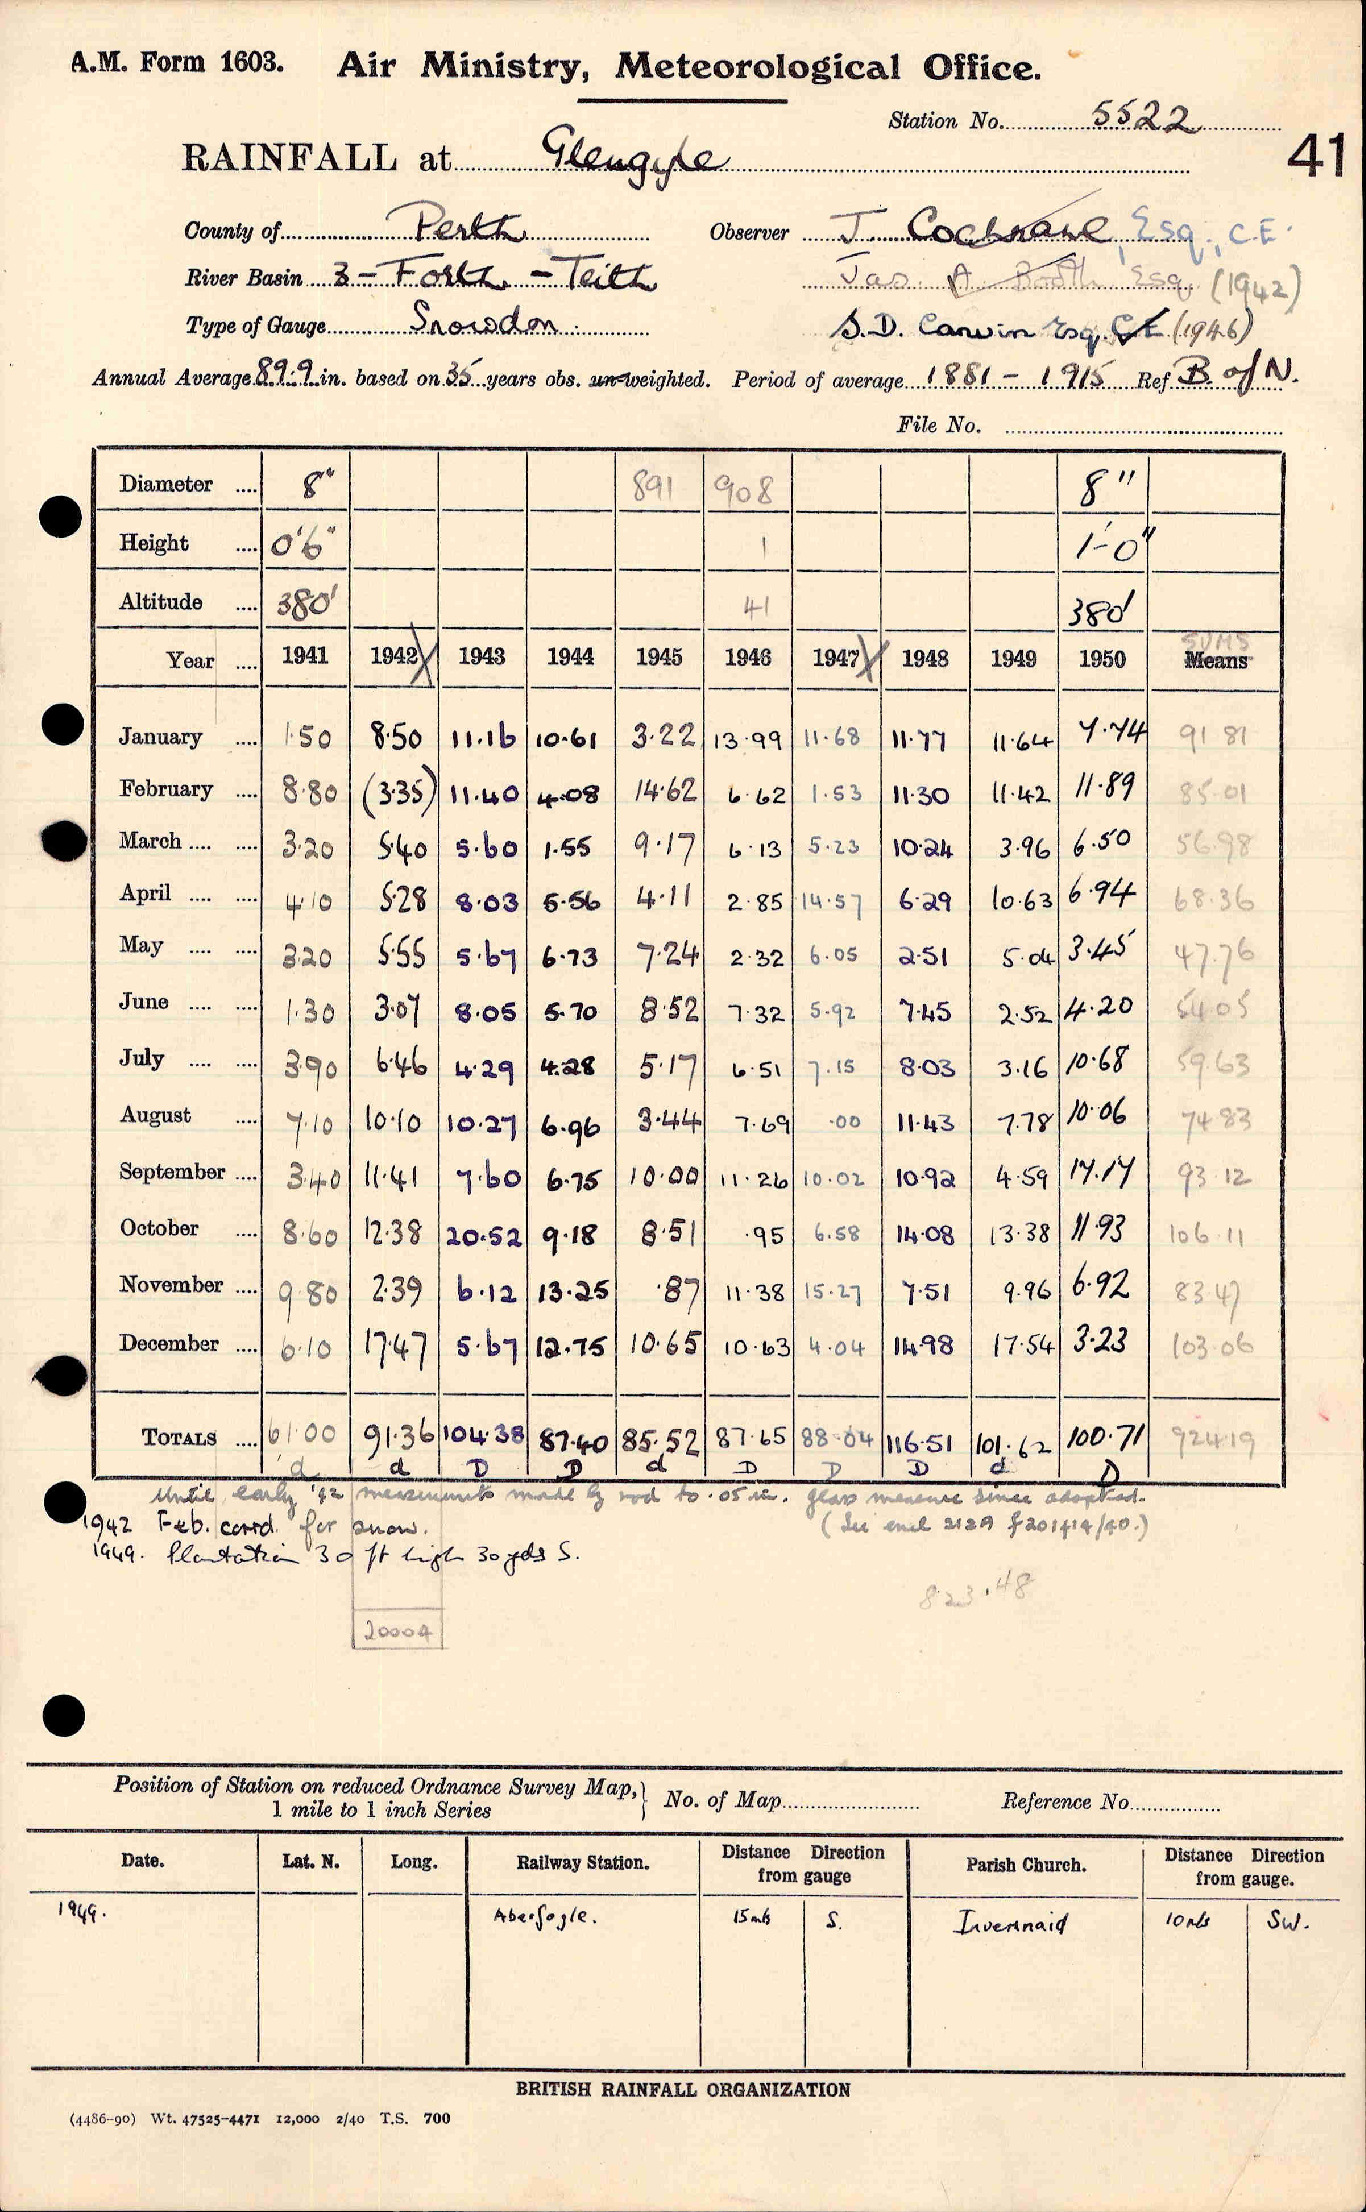 A.M. Form 1603. Air Ministry, Meteorological Office.
Station No. 5522
41
RAINFALL at Glengyle
County of Perth Observer J. Cochrane Esq., C.E.
River Basin 3 - Forth - Teith Jas. A. Booth Esq. (1942)
Type of Gauge Snowdon S.D. Canvin Esq. CE (1946)
Annual Average 89.9 in. based on 35 years obs. un-weighted. Period of average 1881 - 1915 Ref B. of N.
File No.
Diameter .... 8" 891 908 8"
Height .... 0'6" 1 1'-0"
Altitude .... 380' 41 380'
SUMS
Year .... 1941 1942 X 1943 1944 1945 1946 1947 X 1948 1949 1950 Means
January .... 1.50 8.50 11.16 10.61 3.22 13.99 11.68 11.77 11.64 7.74 91 81
February .... 8.80 (3.35) 11.40 4.08 14.62 6.62 1.53 11.30 11.42 11.89 85.01
March .... .... 3.20 5.40 5.60 1.55 9.17 6.13 5.23 10.24 3.96 6.50 56.98
April .... .... 4.10 5.28 8.03 5.56 4.11 2.85 14.57 6.29 10.63 6.94 68.36
May .... .... 3.20 5.55 5.67 6.73 7.24 2.32 6.05 2.51 5.04 3.45 47.76
June .... .... 1.30 3.07 8.05 5.70 8.52 7.32 5.92 7.45 2.52 4.20 54.05
July .... .... 3.90 6.46 4.29 4.28 5.17 6.51 7.15 8.03 3.16 10.68 59.63
August .... 7.10 10.10 10.27 6.96 3.44 7.69 .00 11.43 7.78 10.06 74.83
September .... 3.40 11.41 7.60 6.75 10.00 11.26 10.02 10.92 4.59 17.17 93.12
October .... 8.60 12.38 20.52 9.18 8.51 .95 6.58 14.08 13.38 11.93 106.11
November .... 9.80 2.39 6.12 13.25 .87 11.38 15.27 7.51 9.96 6.92 83.47
December .... 6.10 17.47 5.67 12.75 10.65 10.63 4.04 14.98 17.54 3.23 103.06
TOTALS .... 61.00 91.36 104.38 87.40 85.52 87.65 88.04 116.51 101.62 100.71 924.19
d d D D d D D D d D
Until early '42 measurements made by rod to .05 in. glass measure since adopted.
1942 Feb. corrd. for snow. (See encl 212A f201414/40.)
1949. Plantation 30 ft high 30 yds S.
823.48
20004
Position of Station on reduced Ordnance Survey Map, } No. of Map Reference No.
1 mile to 1 inch Series
Date. Lat. N. Long. Railway Station. Distance Direction from gauge Parish Church. Distance Direction from gauge.
1949. Aberfoyle. 15 mls S. Inversnaid 10 mls SW.
BRITISH RAINFALL ORGANIZATION
(4486-90) Wt. 47525-4471 12,000 2/40 T.S. 700